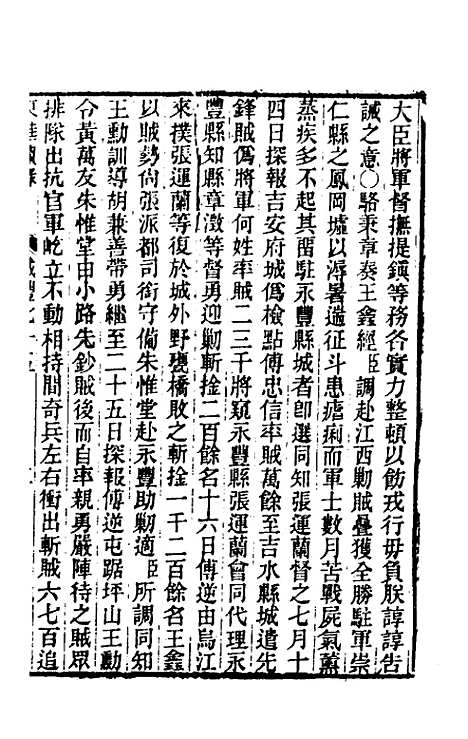 大臣將軍督撫提鎮等務各實力整頓以飭戎行毋負朕諄諄告
誡之意○駱秉章奏王鑫經臣調赴江西勦賊疊獲全勝駐軍崇
仁縣之鳳岡墟以溽暑遄征斗患瘧痢而軍士數月苦戰屍氣薰
蒸疾多不起其留駐永豐縣城者卽選同知張運蘭督之七月十
四日探報吉安府城僞檢點傅忠信率賊萬餘至吉水縣城遣先
鋒賊僞將軍何姓率賊二三千將窺永豐縣張運蘭會同代理永
豐縣知縣章澂等督勇迎勦斬捦二百餘名十六日傅逆由烏江
來撲張運蘭等復於城外野甕橋敗之斬捦一千二百餘名王鑫
以賊勢尙張派都司銜守備朱惟堂赴永豐助勦適臣所調同知
王勳訓導胡兼善帶勇繼至二十五日探報傅逆屯踞坪山王勳
令黃萬友朱惟堂由小路先鈔賊後而自率親勇嚴陣待之賊眾
排隊出抗官軍屹立不動相持間奇兵左右衝出斬賊六七百追